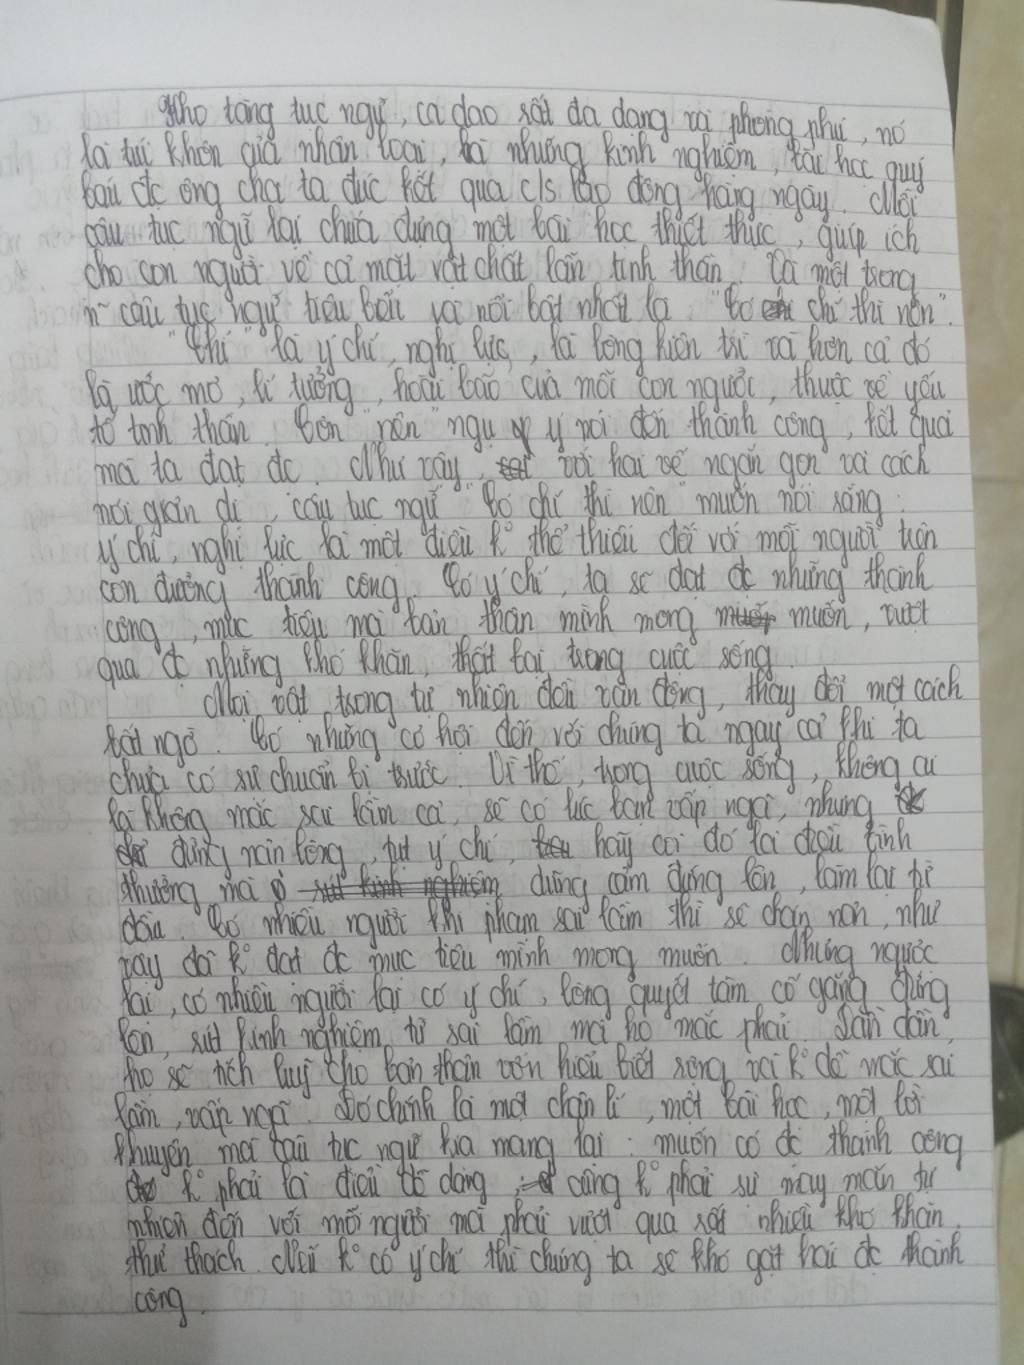 Kho tàng tục ngữ, ca dao rất đa dạng và phong phú, nó
là túi khôn giả nhân loại, là những kinh nghiệm, bài học quý
báu đc ông cha ta đúc kết qua c/s lao động hàng ngày. Mỗi
câu tục ngữ lại chứa đựng một bài học thiết thực, giúp ích
cho con người về cả mặt vật chất lẫn tinh thần. Và một trong
n~ câu tục ngữ tiêu biểu và nổi bật nhất là "Có chí thì nên".
"Chí" là ý chí, nghị lực, là lòng kiên trì và hơn cả đó
là ước mơ, lí tưởng, hoài bão của mỗi con người, thuộc về yếu
tố tinh thần. Còn "nên" ngụ ý nói đến thành công, kết quả
mà ta đạt đc. Như vậy, với hai vế ngắn gọn và cách
nói giản dị, câu tục ngữ "Có chí thì nên" muốn nói rằng:
ý chí, nghị lực là một điều k° thể thiếu đối với mỗi người trên
con đường thành công. Có ý chí, ta sẽ đạt đc những thành
công, mục tiêu mà bản thân mình mong muốn, vượt
qua đc những khó khăn, thất bại trong cuộc sống.
Mọi vật trong tự nhiên đều vận động, thay đổi một cách
bất ngờ. Có những cơ hội đến với chúng ta ngay cả khi ta
chưa có sự chuẩn bị trước. Vì thế, trong cuộc sống, không ai
là không mắc sai lầm cả, sẽ có lúc bạn vấp ngã, nhưng
đừng nản lòng, nhụt ý chí, hãy coi đó là điều bình
thường mà dũng cảm đứng lên, làm lại từ
đầu. Có nhiều người khi phạm sai lầm thì sẽ chán nản, như
vậy đã k° đạt đc mục tiêu mình mong muốn. Nhưng ngược
lại, có nhiều người lại có ý chí, lòng quyết tâm cố gắng đứng
lên, rút kinh nghiệm từ sai lầm mà họ mắc phải. Dần dần,
họ sẽ tích luỹ cho bản thân vốn hiểu biết rộng và k° dễ mắc sai
lầm, vấp ngã. Đó chính là một chân lí, một bài học, một lời
khuyên mà câu tục ngữ kia mang lại: muốn có đc thành công
k° phải là điều dễ dàng, cũng k° phải sự may mắn tự
nhiên đến với mỗi người mà phải vượt qua rất nhiều khó khăn,
thử thách. Nếu k° có ý chí thì chúng ta sẽ khó gặt hái đc thành
công.